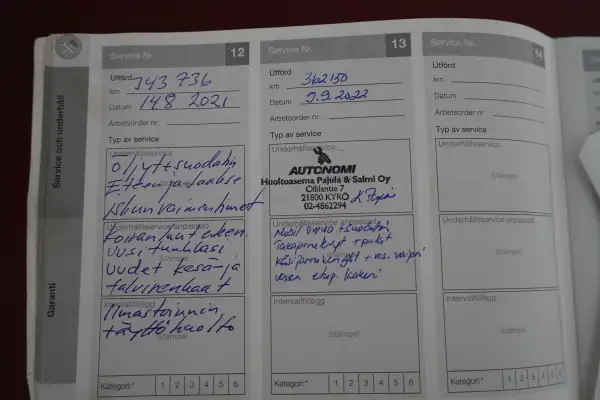 Service och underhåll
Garanti
Service Nr. 12
Utförd
km 343 736
Datum 14.8 2021
Arbetsorder nr
Typ av service
Underhållsservice
Öljyt + suodatin
Eteen ja taakse
iskunvaimentimet
Underhållsservice anpassad
Uusi tuulilasi
Stämpel
Uudet kesä- ja
talvirenkaat
Intervalltillägg
Ilmastoinnin
Stämpel
täyttöhuolto
Kategori:* 1 2 3 4 5 6
Service Nr. 13
Utförd
km 362150
Datum 9.9.2022
Arbetsorder nr.
Typ av service
Underhållsservice
AUTONOMI
Huoltoasema Pajula & Salmi Oy
Ollilantie 7
21800 KYRÖ
02-4862294
Underhållsservice anpassad
Mobil + suodatin
Stämpel
Intervalltillägg
Stämpel
Kategori:* 1 2 3 4 5 6
Service Nr. 14
Utförd
km
Datum
Arbetsorder nr.
Typ av service
Underhållsservice
Stämpel
Underhållsservice anpassad
Stämpel
Intervalltillägg
Stämpel
Kategori:* 1 2 3 4 5 6